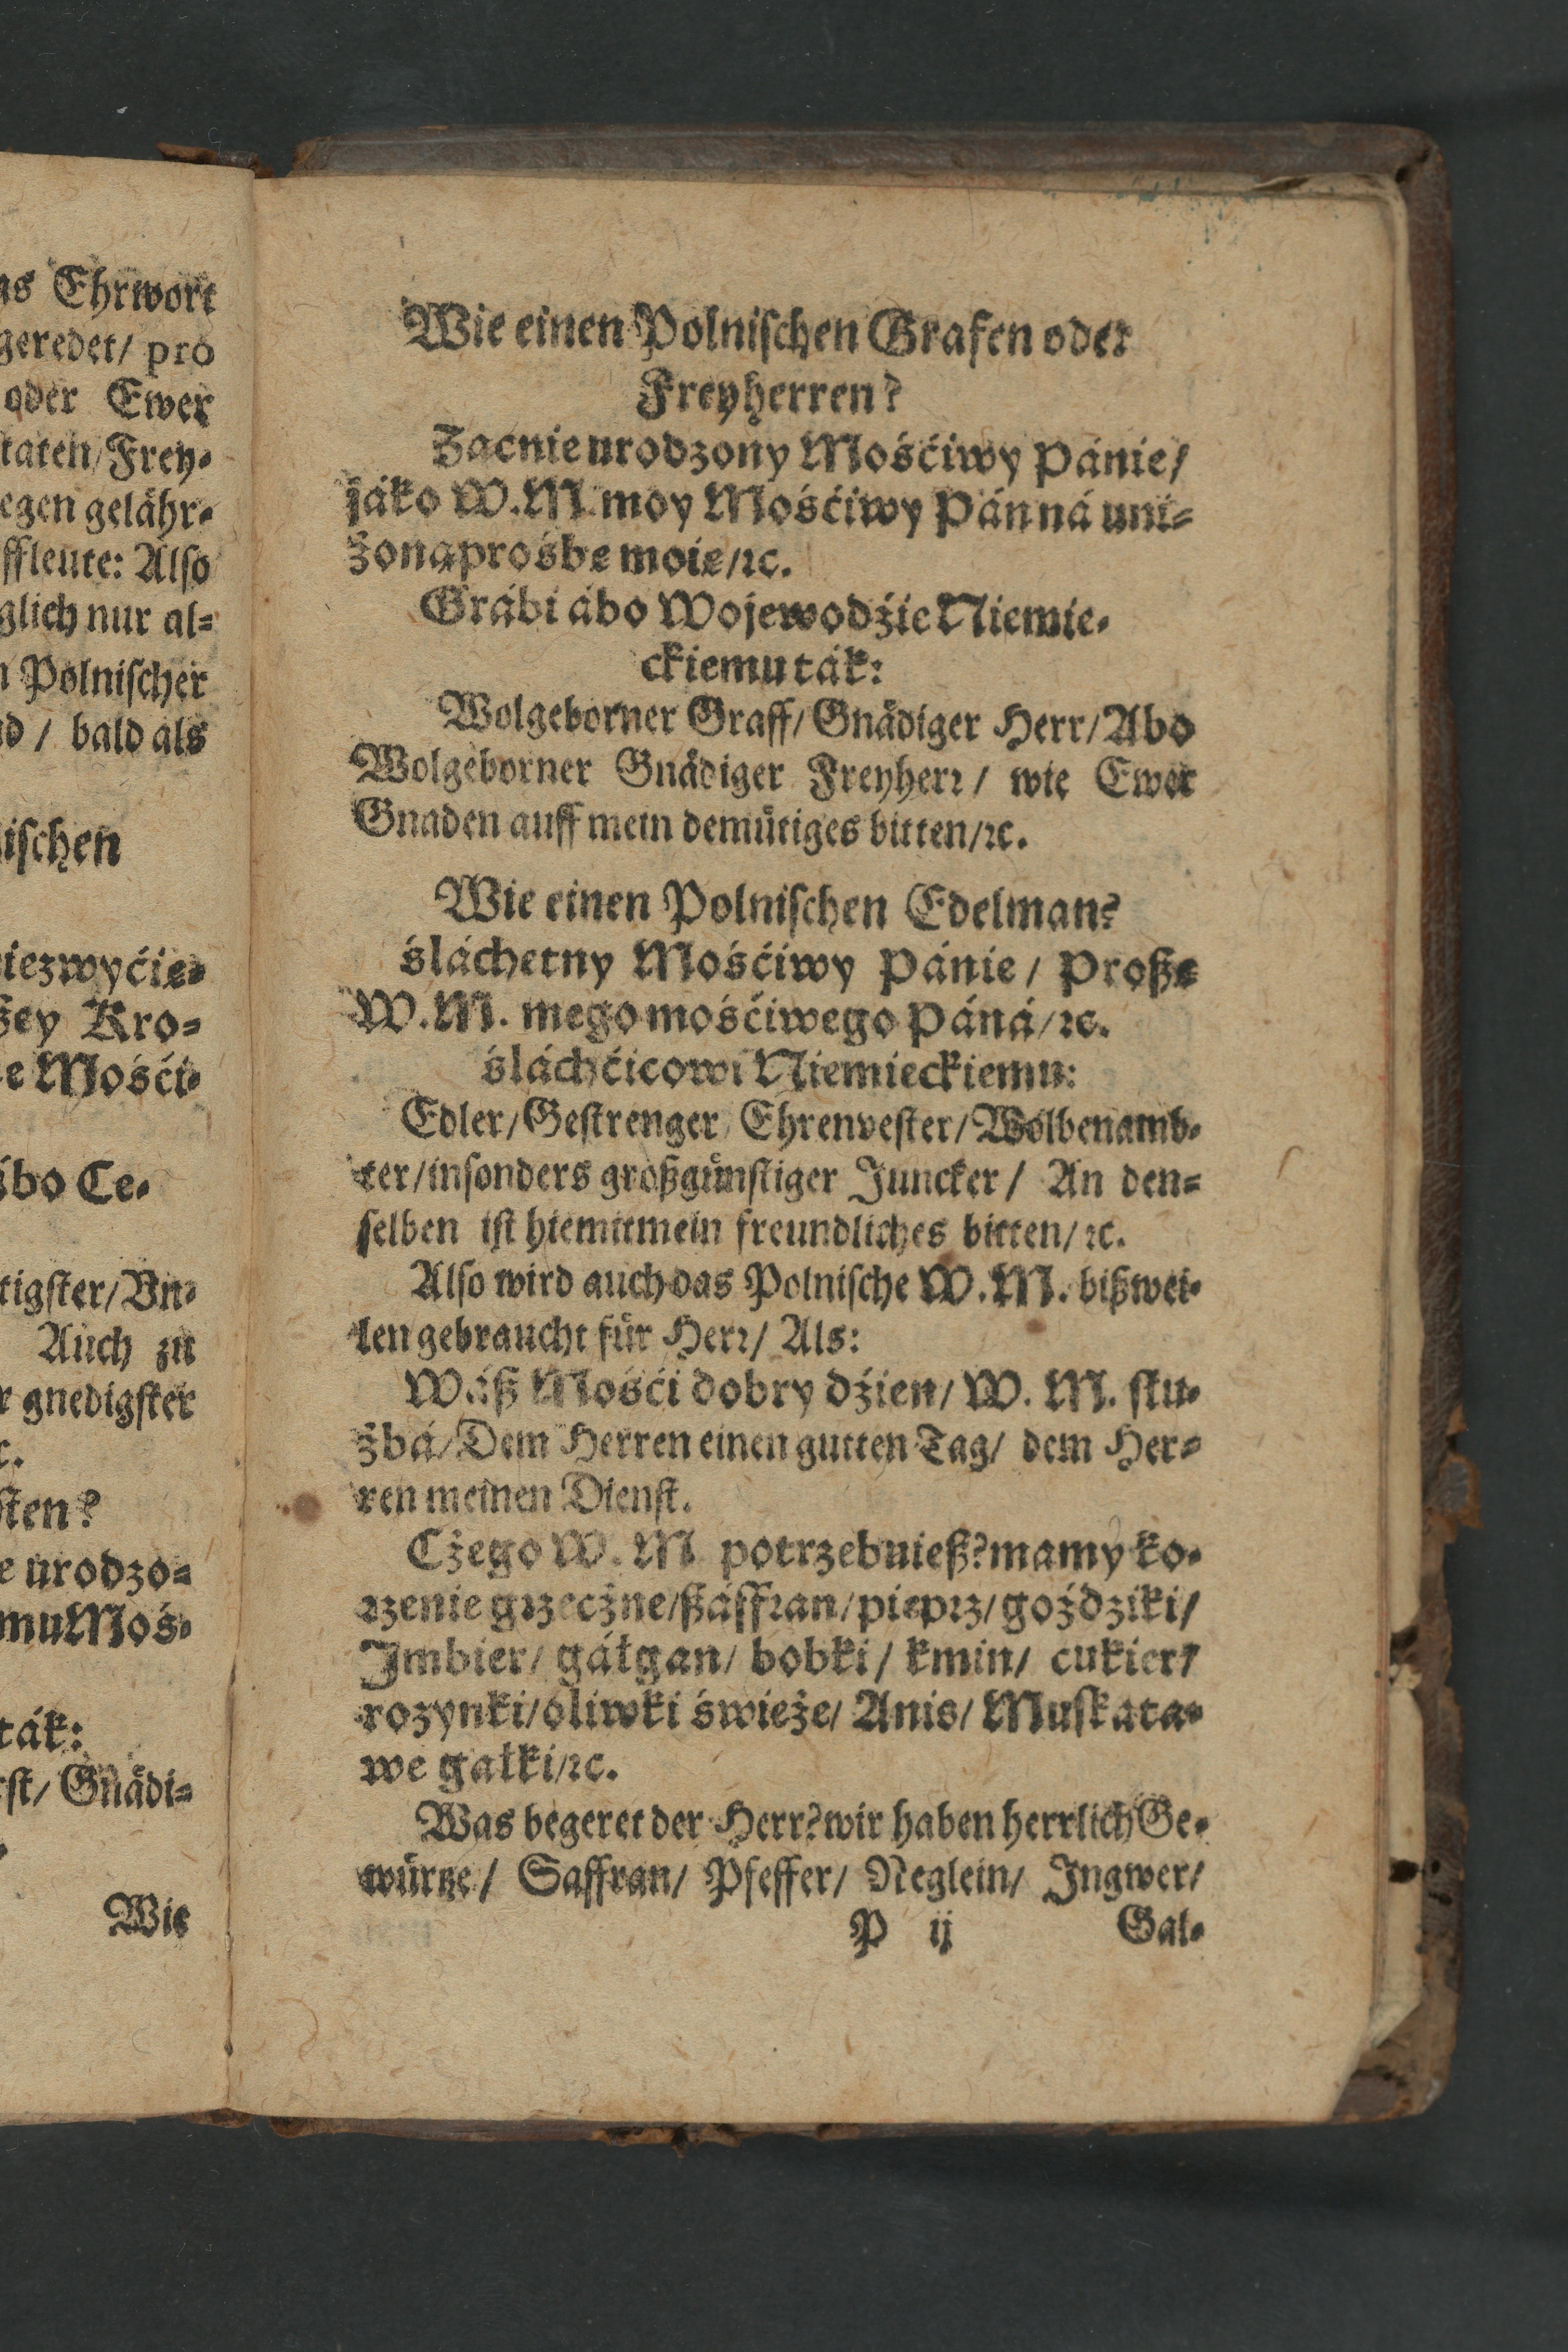 as Ehrwort
geredet/ pro
oder Ewer
taten/Frey-
egen gelähr-
ffleute: Also
glich nur al-
n Polnischer
nd / bald als
ischen
iezwyćię-
ßey Kro-
e Mośći-
ábo Ce-
tigster/Vn-
Auch zu
r gnedigster
c.
sten?
e urodzo-
muMoś-
ták:
rst/ Gnädi-
Wie
Wie einen Polnischen Grafen oder
Freyherren?
Zacnie urodzony Mośćiwy Pánie/
jáko W.M. moy Mośćiwy Pán ná uni-
żoną prośbę moię/ꝛc.
Grábi ábo Wojewodźie Niemie-
ckiemu ták:
Wolgeborner Graff/ Gnädiger Herr/ Abo
Wolgeborner Gnädiger Freyherꝛ/ wie Ewer
Gnaden auff mein demütiges bitten/ꝛc.
Wie einen Polnischen Edelman?
śláchetny Mośćiwy Pánie / Proßę
W.M. mego mośćiwego Páná/ꝛc.
śláchćicowi Niemieckiemu:
Edler/Gestrenger Ehrenvester/Wolbenamb-
ter/insonders großgünstiger Juncker / An den-
selben ist hiemit mein freundliches bitten/ ꝛc.
Also wird auch das Polnische W.M. bißwei-
len gebraucht für Herꝛ/ Als:
Wáß Mośći dobry dźien/ W. M. słu-
żbá/ Dem Herren einen gutten Tag/ dem Her-
ren meinen Dienst.
Cżego W. M potrzebuieß? mamy ko-
ꝛzenie gꝛzecżne/ßáffꝛan/piepꝛz/goździki/
Imbier/ gáłgan/ bobki / kmin/ cukier/
rozynki/oliwki świeże/ Anis/ Muskata-
we gałki/ꝛc.
Was begeret der Herr? wir haben herrlich Ge-
würtze / Saffran/ Pfeffer/ Neglein/ Ingwer/
P ij Gal-